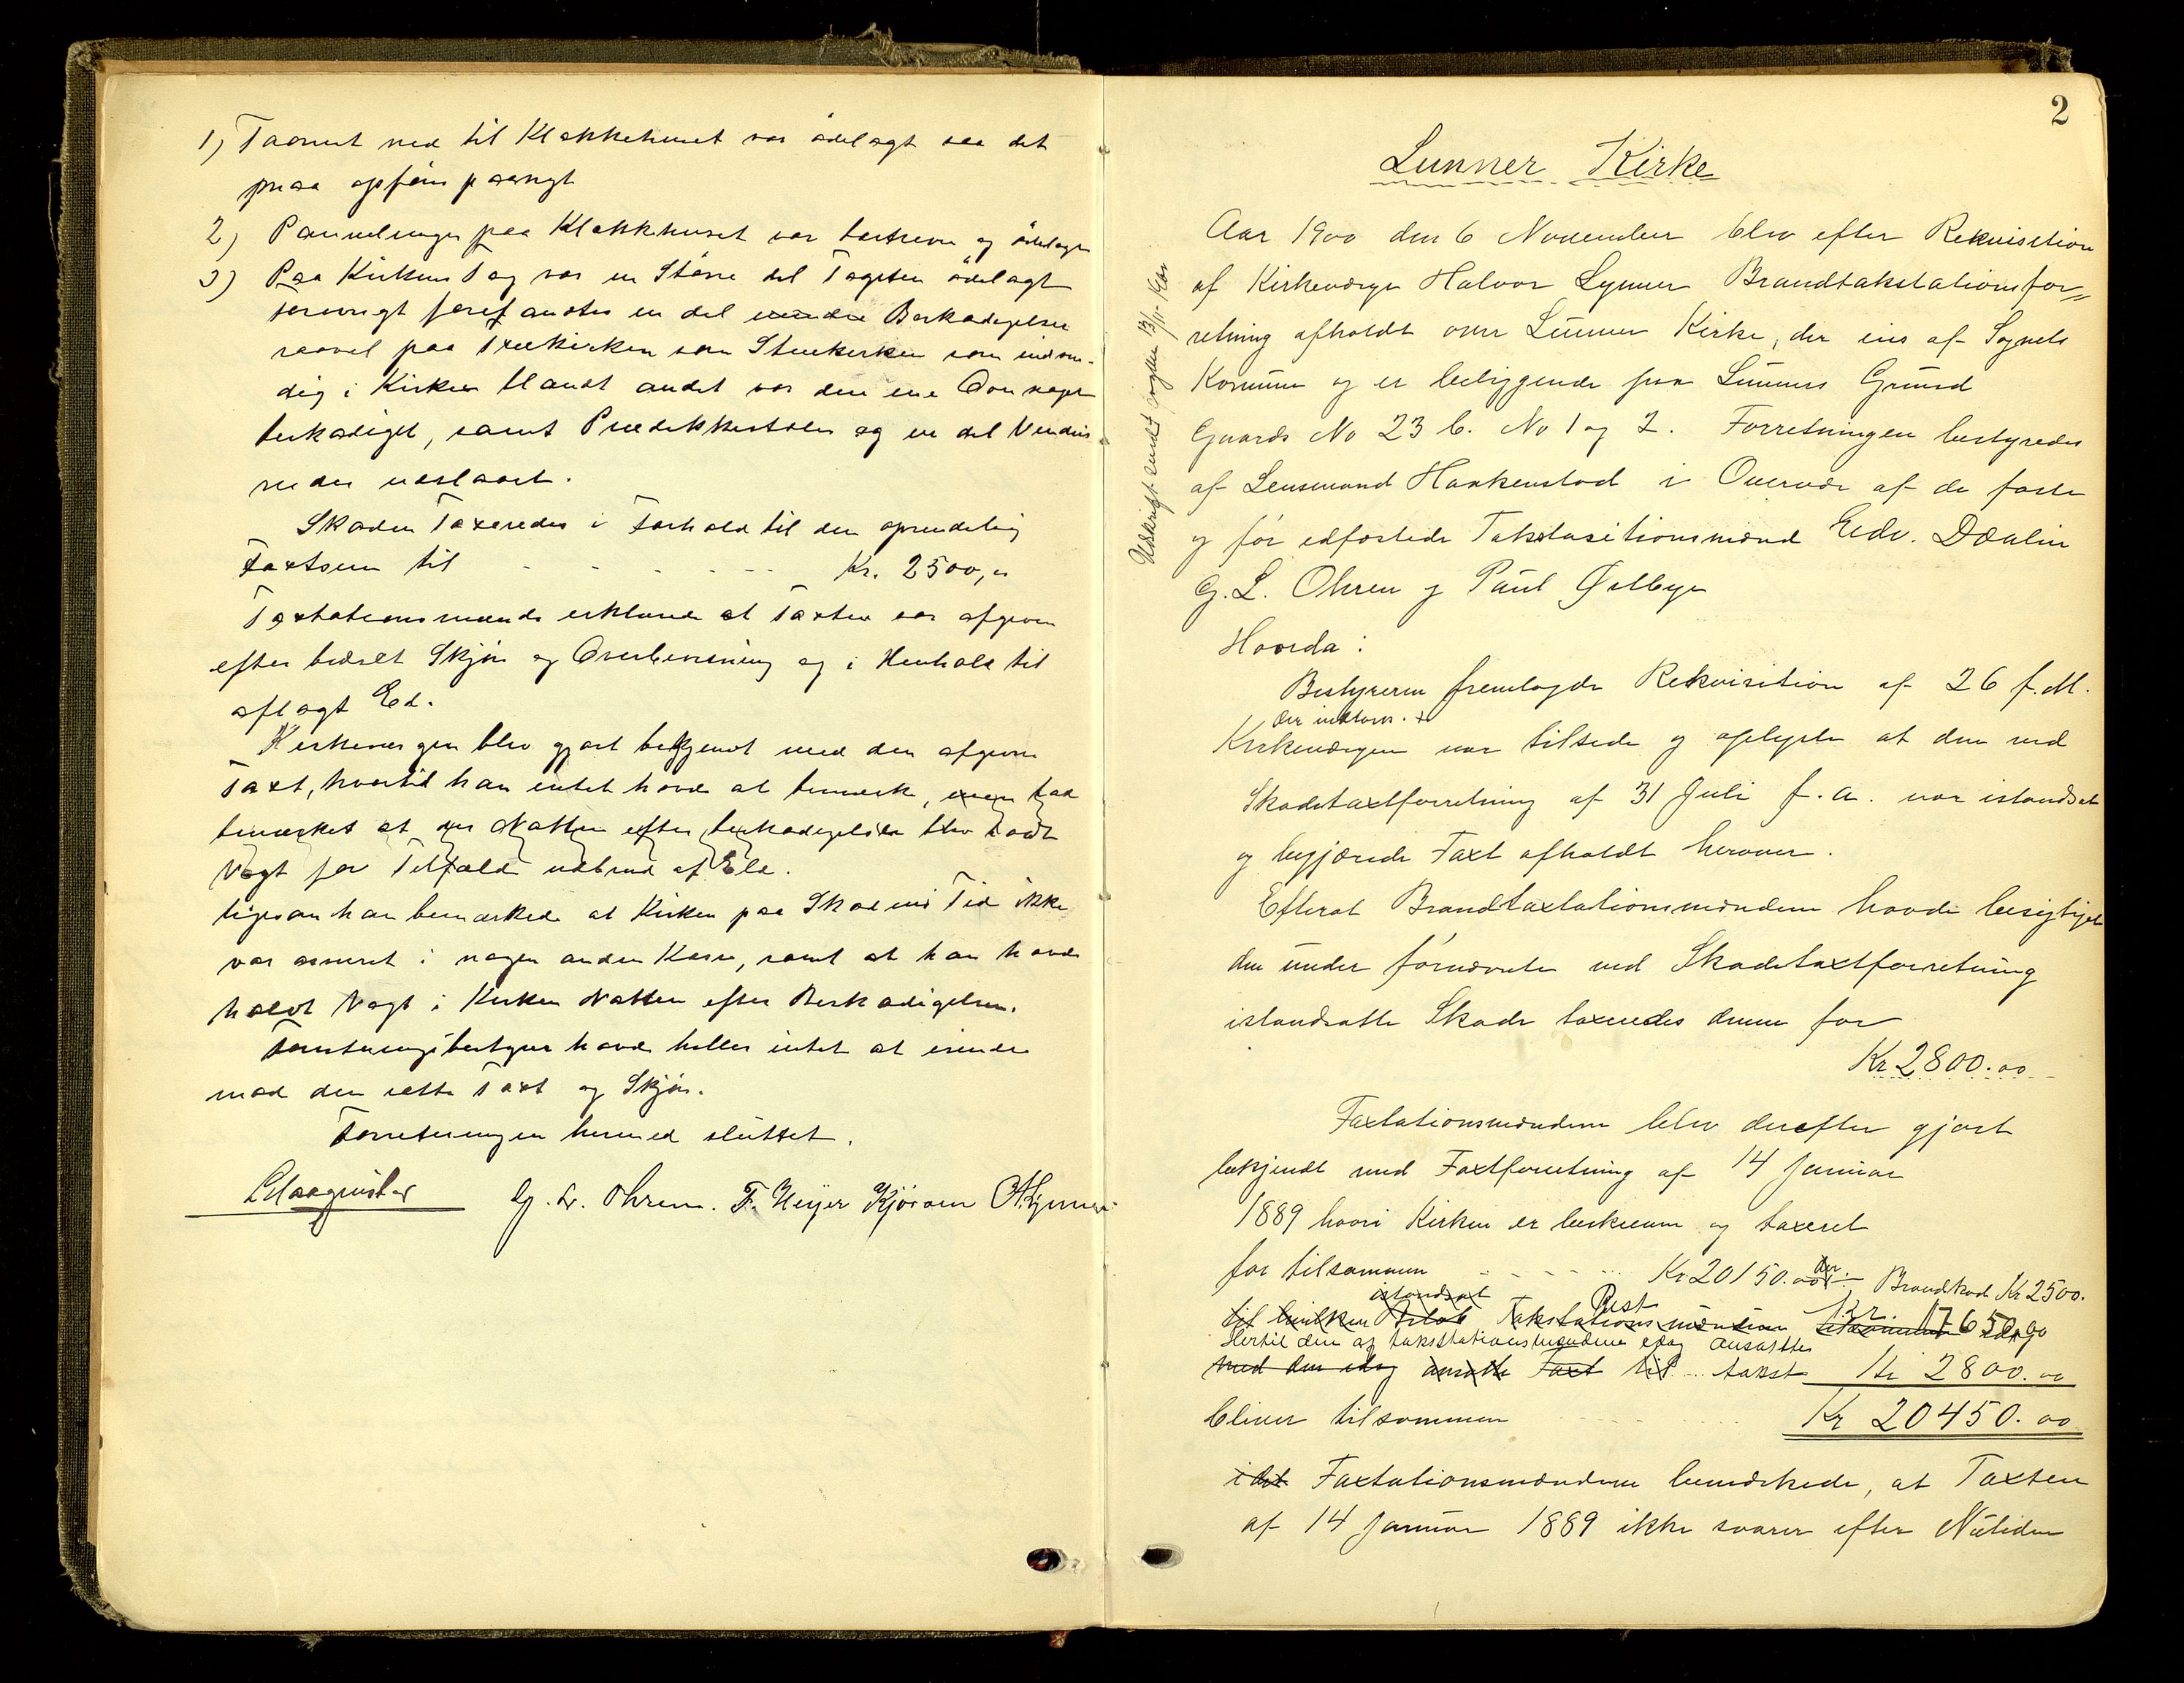 1) Taarnet ned til Klokkehuset var ødelagt saa det
maa opføres paanyt
2) Panelinger paa Klokkhuset var bortreven og ødelagt
3) Paa Kirkens Tag var en Større del Tagsten ødelagt
forøvrigt forefandtes en del mindre Beskadigelser
saavel paa Trækirken som Stenkirken som indven-
dig i Kirken blandt andet var den ene Ovn noget
beskadiget, samt Prædikkestolen og en del Vindus
ruder udslaaet.
Skaden Taxeredes i Forhold til den oprindelig
Taxtsum til - - - - - - Kr. 2500,00
Taxtationsmænds erklærede at Taxten var afgiven
efter bedste Skjøn og Overbevisning og i Henhold til
aflagt Ed.
Kirkeværgen blev gjort bekjendt med den afgivne
Taxt, hvortil han intet havde at bemærke, men bad
bemærket at der Natten efter beskadigelsen blev holdt
Vagt for Tilfælde udbrud af Eld.
ligesom han bemærkede at Kirken paa Skadens Tid ikke
var assureret i nogen anden Kasse, samt at han havde
holdt Vagt i Kirken Natten efter Beskadigelsen.
Forretningsbestyrer havde heller intet at erindre
mod den satte Taxt og Skjøn.
Forretningen hermed sluttet.
G. L. Ohren. F. Heyer Kjørven H Lynner
2
Lunner Kirke
Aar 1900 den 6 November blev efter Rekvisition
af Kirkeværge Halvor Lynner Brandtakstationsfor-
retning afholdt over Lunner Kirke, der eies af Sognets
Komune og er beliggende paa Lunners Grund
Gaards No 23 b. No 1 og 2. Forretningen bestyredes
af Lensmand Haakenstad i Overvær af de faste
og før edfæstede Takstasitionsmænd Edv. Dæhlin
G. L. Ohren og Paul Østbye
Udskrift sendt fogden 13/11 1900
Hvorda:
Bestyreren fremlagde Rekvisition af 26 f. M.
der indtages.
Kirkeværgen var tilstede og oplyste at den ved
Skadetaxtforretning af 31 Juli f. a. var istandsat
og begjærede Taxt afholdt herover.
Efterat Brandtaxtationsmændene havde besigtiget
den under førnævnte ved Skadetaxtforretning
istandsatte Skade taxeredes denne for
Kr 2800.00
Taxtationsmændene blev derefter gjort
bekjendt med Taxtforretning af 14 Januar
1889 hvori Kirken er beskreven og taxeret
for tilsammen - - - - Kr 20150.00 der Brandskad Kr 2500.
istandsat Rest
til hvilken Beløb Takstationsmændene Kr. 17650,00
Hertil den af takstationsmændene idag ansatte
med den idag ansatte Taxt til takst Kr 2800.00
bliver tilsammen Kr 20450.00
idet Taxtationsmændene bemærkede, at Taxten
af 14 Januar 1889 ikke svarer efter Nutiden